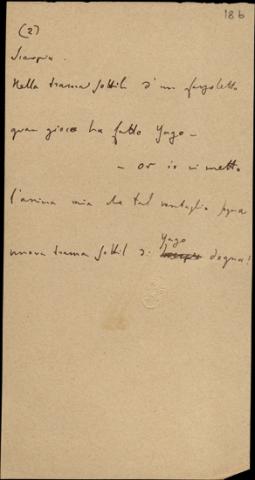 18 b
(2)
Scarpia.
Nella trama sottile d'un fazzoletto
gran gioco ha fatto Yago –
– or io ci metto
l'anima mia che tal ventaglio
nuova trama sottil di Yago degna!